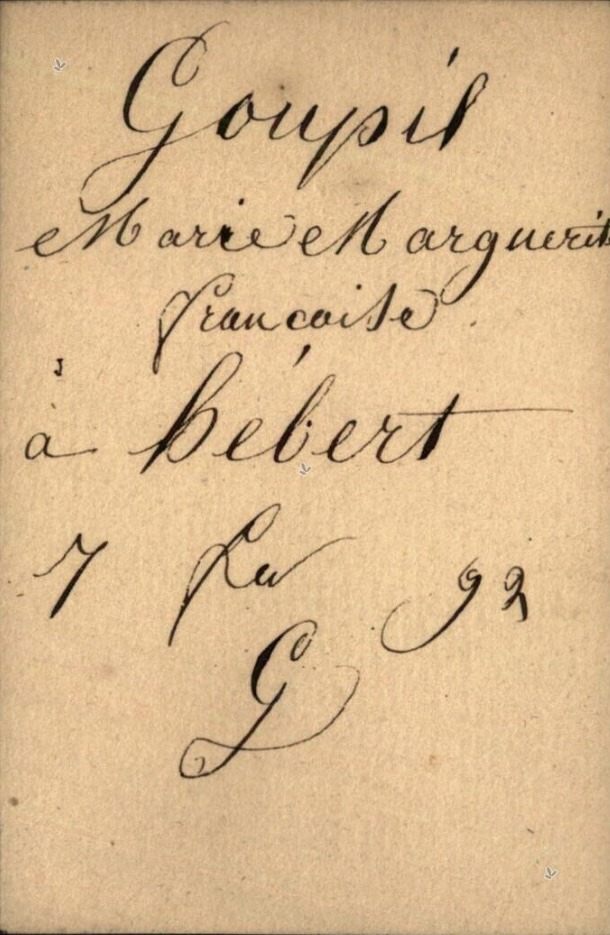 Goupil
Marie Marguerite
françoise
à hébert
7 92
G